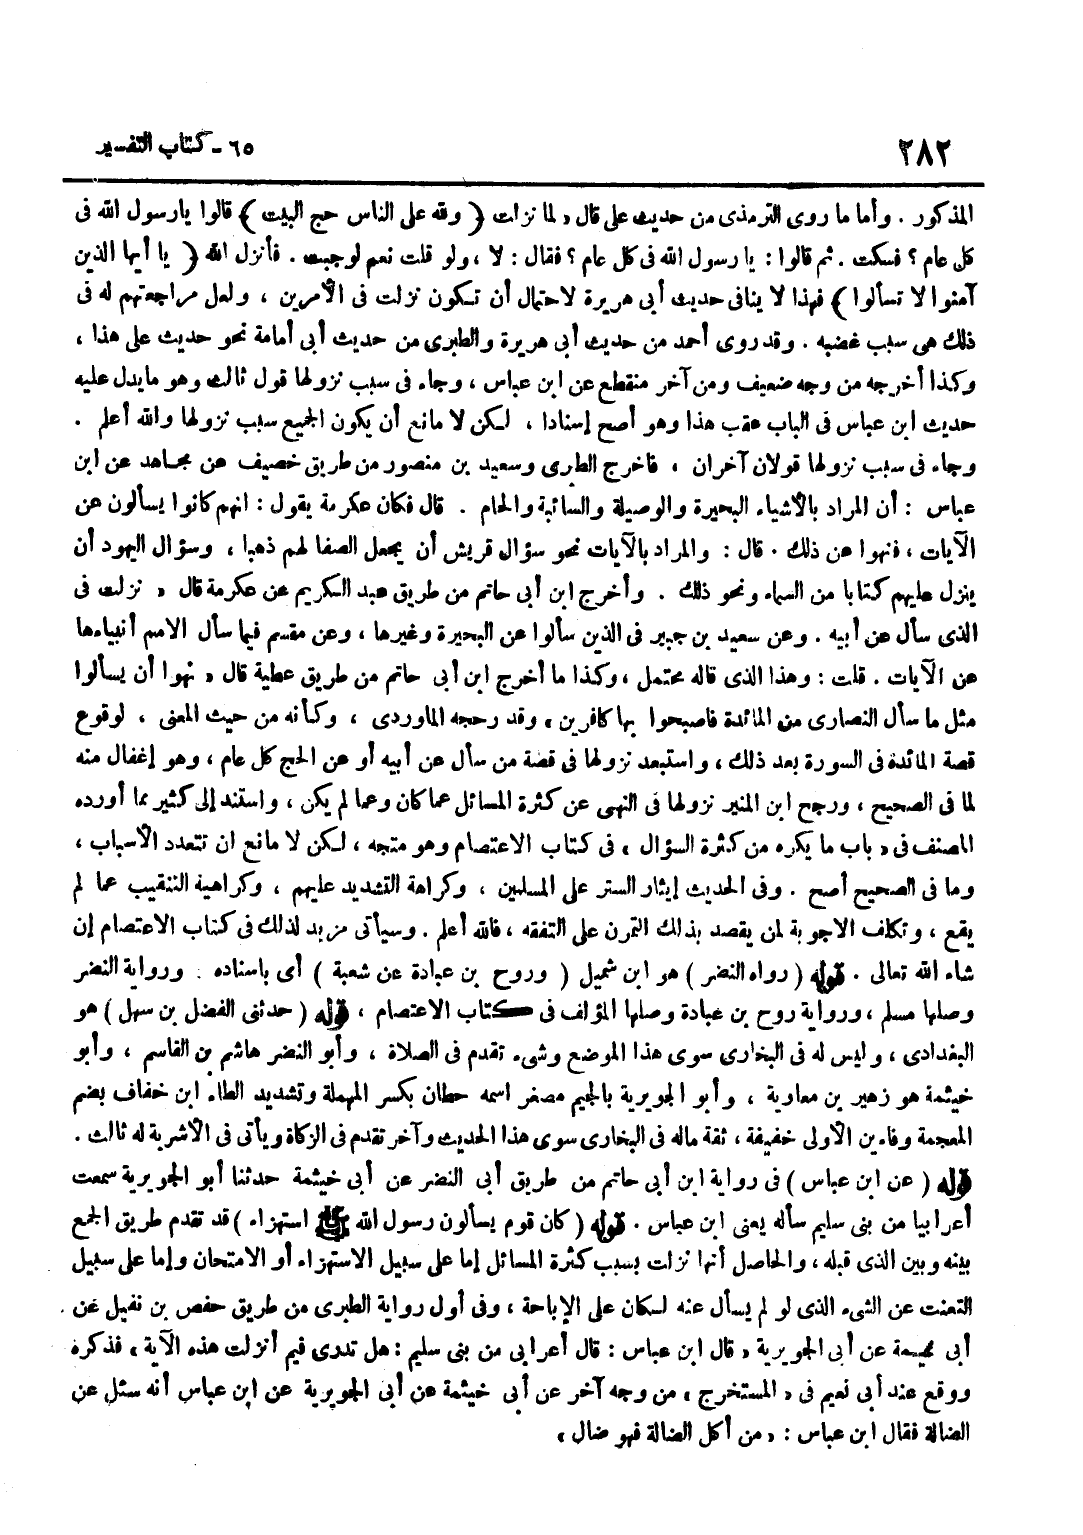 ٢٨٢
٦٥ - كتاب التفسير
المذكور . وأما ما روى الترمذى من حديث على قال « لما نزلت ( ولله على الناس حج البيت ) قالوا يارسول الله فى
كل عام ؟ فسكت . ثم قالوا : يا رسول الله فى كل عام ؟ فقال : لا ، ولو قلت نعم لوجبت . فأنزل الله ( يا أيها الذين
آمنوا لا تسألوا ) فهذا لا ينافى حديث أبى هريرة لاحتمال أن تكون نزلت فى الأمرين ، ولعل مراجعتهم له فى
ذلك هى سبب غضبه . وقد روى أحمد من حديث أبى هريرة والطبرى من حديث أبى أمامة نحو حديث على هذا ،
وكذا أخرجه من وجه ضعيف ومن آخر منقطع عن ابن عباس ، وجاء فى سبب نزولها قول ثالث وهو مايدل عليه
حديث ابن عباس فى الباب عقب هذا وهو أصح إسنادا ، لكن لا مانع أن يكون الجميع سبب نزولها والله أعلم .
وجاء فى سبب نزولها قولان آخران ، فاخرج الطبرى وسعيد بن منصور من طريق خصيف عن مجاهد عن ابن
عباس : أن المراد بالأشياء البحيرة والوصيلة والسائبة والحام . قال فكان عكرمة يقول : انهم كانوا يسألون عن
الآيات ، فنهوا عن ذلك . قال : والمراد بالآيات نحو سؤال قريش أن يجعل الصفا لهم ذهبا ، وسؤال اليهود أن
ينزل عليهم كتابا من السماء ونحو ذلك . وأخرج ابن أبى حاتم من طريق عبد الكريم عن عكرمة قال « نزلت فى
الذى سأل عن أبيه . وعن سعيد بن جبير فى الذين سألوا عن البحيرة وغيرها ، وعن مقسم فيما سأل الامم أنبياءها
عن الآيات . قلت : وهذا الذى قاله محتمل ، وكذا ما أخرج ابن أبى حاتم من طريق عطية قال « نهوا أن يسألوا
مثل ما سأل النصارى من المائدة فاصبحوا بها كافرين » وقد رجحه الماوردى ، وكأنه من حيث المعنى ، لوقوع
قصة المائدة فى السورة بعد ذلك ، واستبعد نزولها فى قصة من سأل عن أبيه أو عن الحج كل عام ، وهو إغفال منه
لما فى الصحيح ، ورجح ابن المنير نزولها فى النهى عن كثرة المسائل عما كان وعما لم يكن ، واستند إلى كثير مما أورده
المصنف فى « باب ما يكره من كثرة السؤال » فى كتاب الاعتصام وهو متجه ، لكن لا مانع ان تتعدد الأسباب ،
وما فى الصحيح أصح . وفى الحديث إيثار الستر على المسلمين ، وكراهة التشديد عليهم ، وكراهية التنقيب عما لم
يقع ، وتكلف الاجوبة لمن يقصد بذلك التمرن على التفقه ، فالله أعلم . وسيأتى مزيد لذلك فى كتاب الاعتصام إن
شاء الله تعالى . قوله ( رواه النضر ) هو ابن شميل ( وروح بن عبادة عن شعبة ) أى باسناده . ورواية النضر
وصلها مسلم ، ورواية روح بن عبادة وصلها المؤلف فى كتاب الاعتصام . قوله ( حدثنى الفضل بن سهل ) هو
البغدادى ، وليس له فى البخارى سوى هذا الموضع وشىء تقدم فى الصلاة ، وأبو النضر هاشم بن القاسم ، وأبو
خيثمة هو زهير بن معاوية ، وأبو الجويرية بالجيم مصغر اسمه حطان بكسر المهملة وتشديد الطاء ابن خفاف بضم
المعجمة وفاءين الأولى خفيفة ، ثقة ماله فى البخارى سوى هذا الحديث وآخر تقدم فى الزكاة ويأتى فى الأشربة له ثالث .
قوله ( عن ابن عباس ) فى رواية ابن أبى حاتم من طريق أبى النضر عن أبى خيثمة حدثنا أبو الجويرية سمعت
أعرابيا من بنى سليم سأله يعنى ابن عباس . قوله ( كان قوم يسألون رسول الله ﷺ استهزاء ) قد تقدم طريق الجمع
بينه وبين الذى قبله ، والحاصل أنها نزلت بسبب كثرة المسائل إما على سبيل الاستهزاء أو الامتحان وإما على سبيل
التعنت عن الشىء الذى لو لم يسأل عنه لكان على الإباحة ، وفى أول رواية الطبرى من طريق حفص بن نفيل عن
أبى خيثمة عن أبى الجويرية « قال ابن عباس : قال أعرابى من بنى سليم : هل تدرى فيم أنزلت هذه الآية » فذكره
ووقع عند أبى نعيم فى « المستخرج » من وجه آخر عن أبى خيثمة عن أبى الجويرية عن ابن عباس أنه سئل عن
الضالة فقال ابن عباس : « من أكل الضالة فهو ضال »